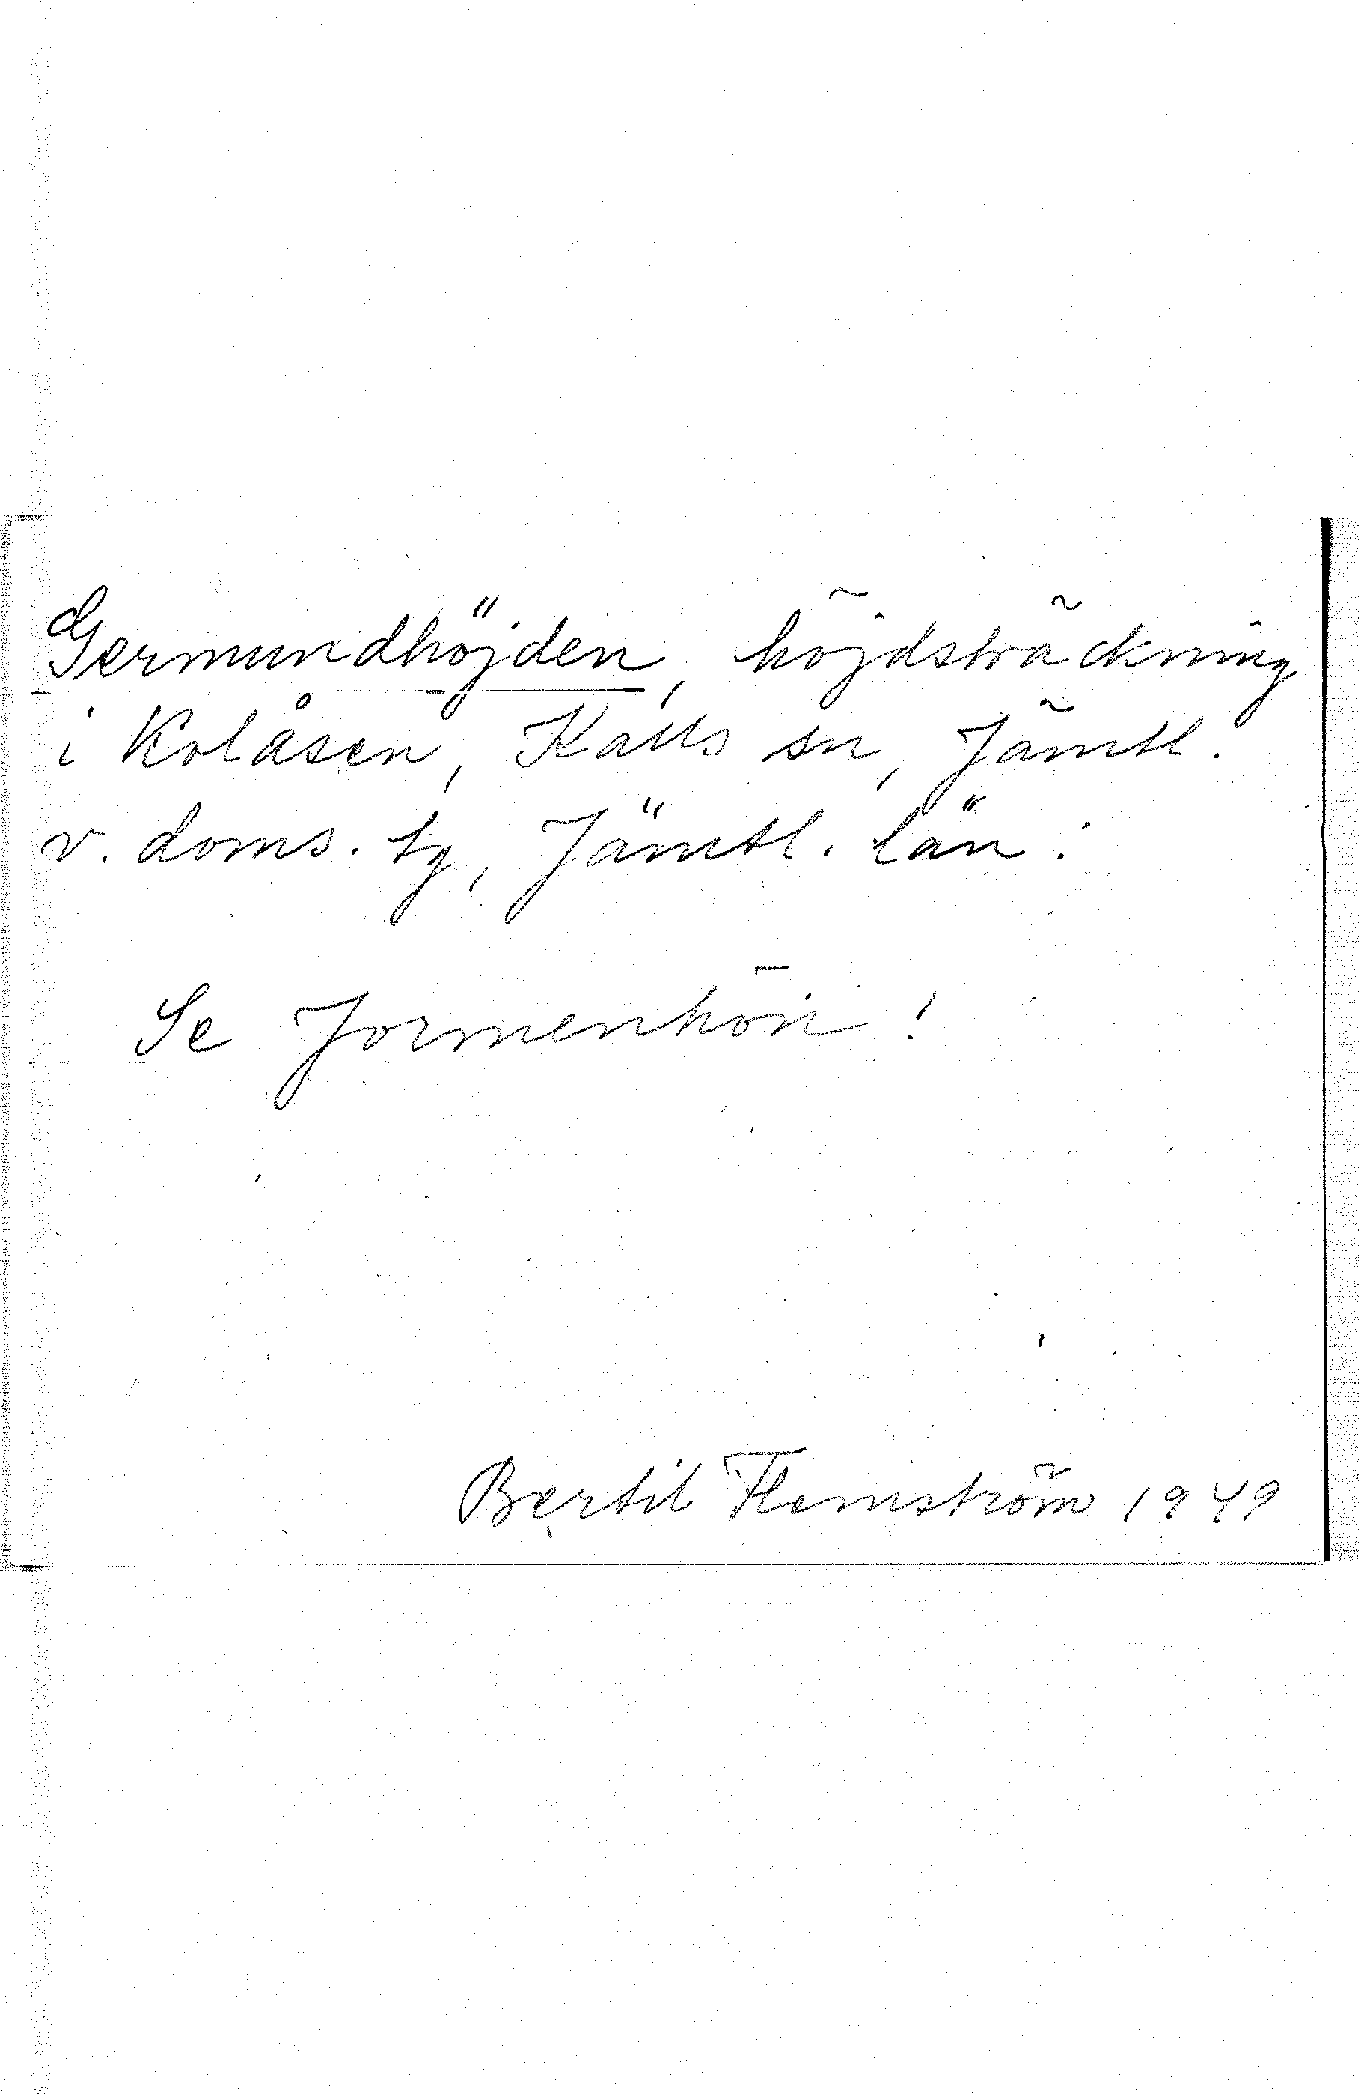 Germundhöjden, höjdsträckning
i Kolåsen, Kalls sn, Jämtl.
v. doms. tg, Jämtl. län.
Se Jormenhön!
Bertil Flemström 1949